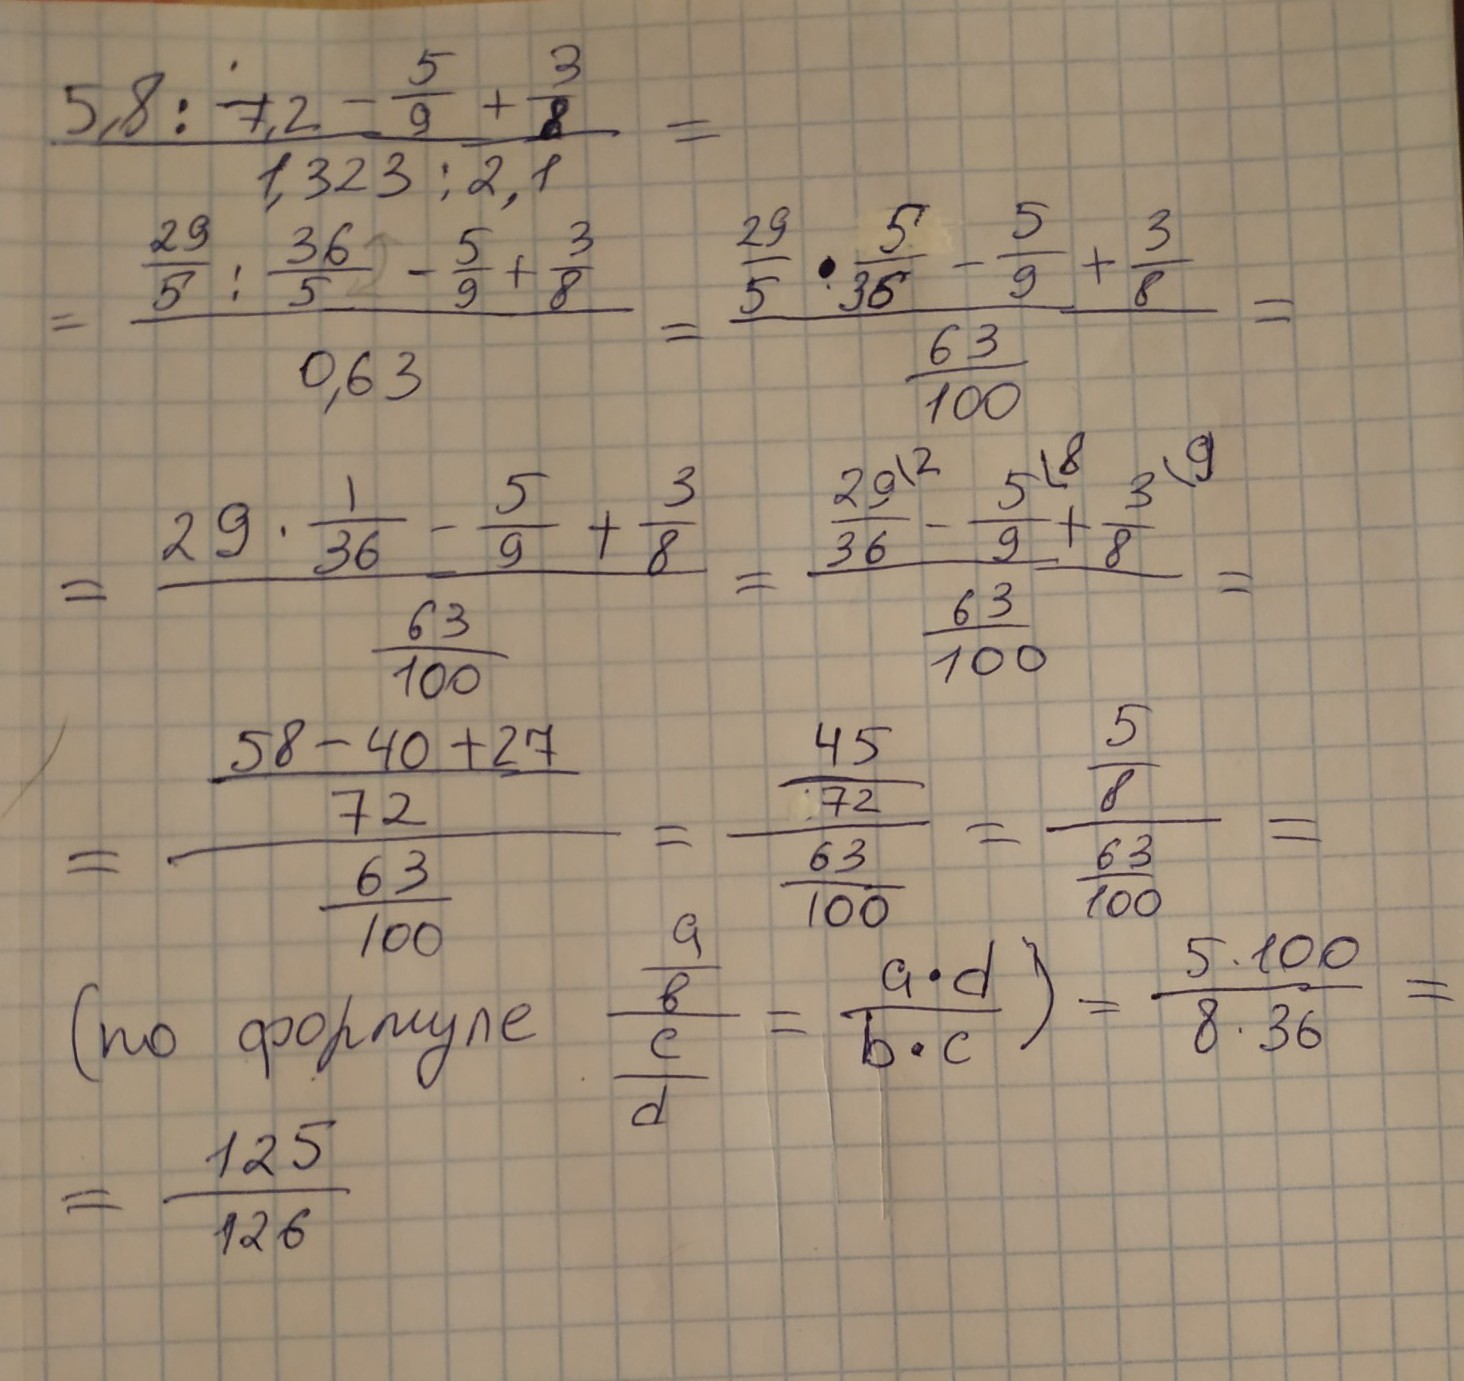 5,8 : 7,2 - 5/9 + 3/8 / 1,323 : 2,1 =
= 29/5 : 36/5 - 5/9 + 3/8 / 0,63 = 29/5 • 5/36 - 5/9 + 3/8 / 63/100 =
= 29 · 1/36 - 5/9 + 3/8 / 63/100 = 29\2/36 - 5\8/9 + 3\9/8 / 63/100 =
= 58 - 40 + 27 / 72 / 63/100 = 45/72 / 63/100 = 5/8 / 63/100 =
(по формуле a/b / c/d = a•d / b•c) = 5·100 / 8·36 =
= 125/126